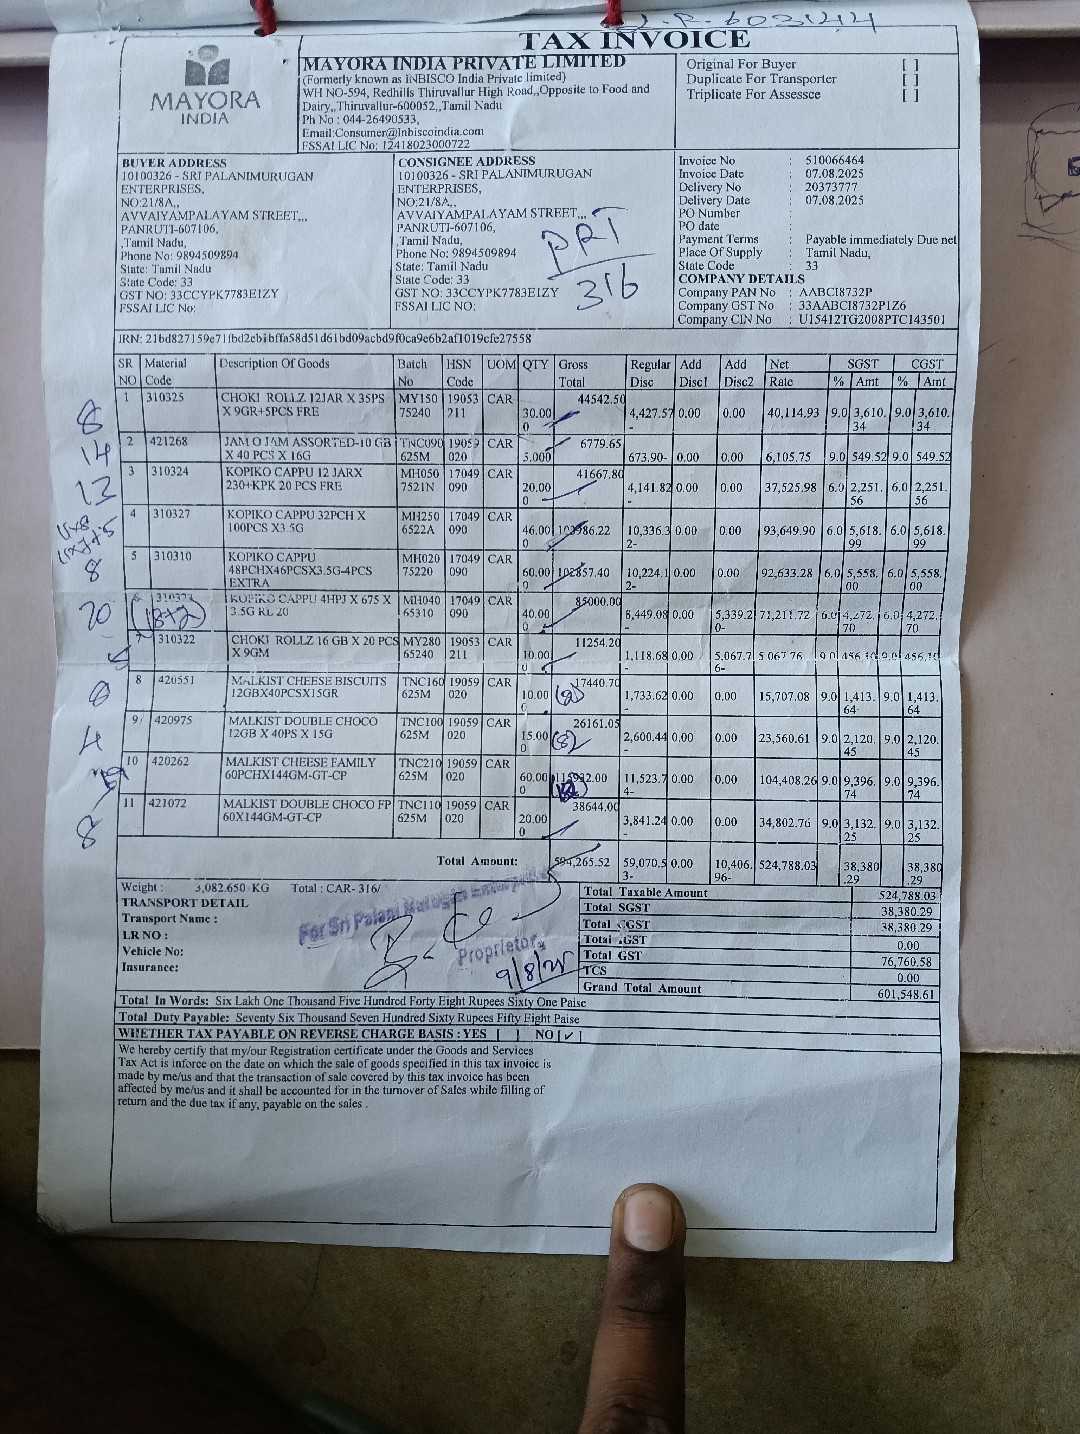 L.R. 603144
TAX INVOICE
MAYORA
INDIA
MAYORA INDIA PRIVATE LIMITED
(Formerly known as INBISCO India Private limited)
WH NO-594, Redhills Thiruvallur High Road,,Opposite to Food and
Dairy,,Thiruvallur-600052,,Tamil Nadu
Ph No : 044-26490533,
Email:Consumer@Inbiscoindia.com
FSSAI LIC No: 12418023000722
Original For Buyer [ ]
Duplicate For Transporter [ ]
Triplicate For Assessee [ ]
BUYER ADDRESS
10100326 - SRI PALANIMURUGAN
ENTERPRISES,
NO:21/8A,,
AVVAIYAMPALAYAM STREET,,,
PANRUTI-607106,
,Tamil Nadu,
Phone No: 9894509894
State: Tamil Nadu
State Code: 33
GST NO: 33CCYPK7783E1ZY
FSSAI LIC No:
CONSIGNEE ADDRESS
10100326 - SRI PALANIMURUGAN
ENTERPRISES,
NO:21/8A,,
AVVAIYAMPALAYAM STREET,,,
PANRUTI-607106,
,Tamil Nadu,
Phone No: 9894509894
State: Tamil Nadu
State Code: 33
GST NO: 33CCYPK7783E1ZY
FSSAI LIC NO:
PRT
316
Invoice No : 510066464
Invoice Date : 07.08.2025
Delivery No : 20373777
Delivery Date : 07.08.2025
PO Number :
PO date :
Payment Terms : Payable immediately Due net
Place Of Supply : Tamil Nadu,
State Code : 33
COMPANY DETAILS
Company PAN No : AABCI8732P
Company GST No : 33AABCI8732P1Z6
Company CIN No : U15412TG2008PTC143501
SR NO Material Code Description Of Goods Batch No HSN Code UOM QTY Gross Total Regular Disc Add Disc1 Add Disc2 Net Rate SGST % Amt CGST % Amt
8 1 310325 CHOKI ROLLZ 12JAR X 35PS X 9GR+5PCS FRE MY150 75240 19053 211 CAR 30.00 0 44542.50 4,427.57 - 0.00 0.00 40,114.93 9.0 3,610. 34 9.0 3,610. 34
14 2 421268 JAM O JAM ASSORTED-10 GB X 40 PCS X 16G TNC090 625M 19059 020 CAR 5.000 6779.65 673.90- 0.00 0.00 6,105.75 9.0 549.52 9.0 549.52
3 310324 KOPIKO CAPPU 12 JARX 230+KPK 20 PCS FRE MH050 7521N 17049 090 CAR 20.00 0 41667.80 4,141.82 - 0.00 0.00 37,525.98 6.0 2,251. 56 6.0 2,251. 56
4 310327 KOPIKO CAPPU 32PCH X 100PCS X3.5G MH250 6522A 17049 090 CAR 46.00 0 103986.22 10,336.3 2- 0.00 0.00 93,649.90 6.0 5,618. 99 6.0 5,618. 99
8 5 310310 KOPIKO CAPPU 48PCHX46PCSX3.5G-4PCS EXTRA MH020 75220 17049 090 CAR 60.00 0 102857.40 10,224.1 2- 0.00 0.00 92,633.28 6.0 5,558. 00 6.0 5,558. 00
20 (18+2) KOPIKO CAPPU 4HPJ X 675 X 3.5G RL 20 MH040 65310 17049 090 CAR 40.00 0 85000.00 8,449.08 - 0.00 5,339.2 0- 71,211.72 6.0 4,272. 70 6.0 4,272. 70
7 310322 CHOKI ROLLZ 16 GB X 20 PCS X 9GM MY280 65240 19053 211 CAR 10.00 0 11254.20 1,118.68 - 0.00 5,067.7 6- 5,067.76 9.0 456.10 9.0 456.10
8 8 420551 MALKIST CHEESE BISCUITS 12GBX40PCSX15GR TNC160 625M 19059 020 CAR 10.00 0 17440.70 (8) 1,733.62 - 0.00 0.00 15,707.08 9.0 1,413. 64 9.0 1,413. 64
4 9 420975 MALKIST DOUBLE CHOCO 12GB X 40PS X 15G TNC100 625M 19059 020 CAR 15.00 0 26161.05 (8) 2,600.44 - 0.00 0.00 23,560.61 9.0 2,120. 45 9.0 2,120. 45
10 420262 MALKIST CHEESE FAMILY 60PCHX144GM-GT-CP TNC210 625M 19059 020 CAR 60.00 0 115932.00 11,523.7 4- 0.00 0.00 104,408.26 9.0 9,396. 74 9.0 9,396. 74
8 11 421072 MALKIST DOUBLE CHOCO FP 60X144GM-GT-CP TNC110 625M 19059 020 CAR 20.00 0 38644.00 3,841.24 - 0.00 0.00 34,802.76 9.0 3,132. 25 9.0 3,132. 25
Total Amount: 594,265.52 59,070.5 3- 0.00 10,406. 96- 524,788.03 38,380 .29 38,380 .29
Weight : 3,082.650 KG Total : CAR- 316/
TRANSPORT DETAIL
Transport Name :
LR NO :
Vehicle No:
Insurance:
For Sri Palani Murugan Enterprises
Proprietor
9/8/25
Total Taxable Amount 524,788.03
Total SGST 38,380.29
Total CGST 38,380.29
Total IGST 0.00
Total GST 76,760.58
TCS 0.00
Grand Total Amount 601,548.61
Total In Words: Six Lakh One Thousand Five Hundred Forty Eight Rupees Sixty One Paise
Total Duty Payable: Seventy Six Thousand Seven Hundred Sixty Rupees Fifty Eight Paise
WHETHER TAX PAYABLE ON REVERSE CHARGE BASIS : YES [ ] NO [✓]
We hereby certify that my/our Registration certificate under the Goods and Services
Tax Act is inforce on the date on which the sale of goods specified in this tax invoice is
made by me/us and that the transaction of sale covered by this tax invoice has been
affected by me/us and it shall be accounted for in the turnover of Sales while filling of
return and the due tax if any, payable on the sales .